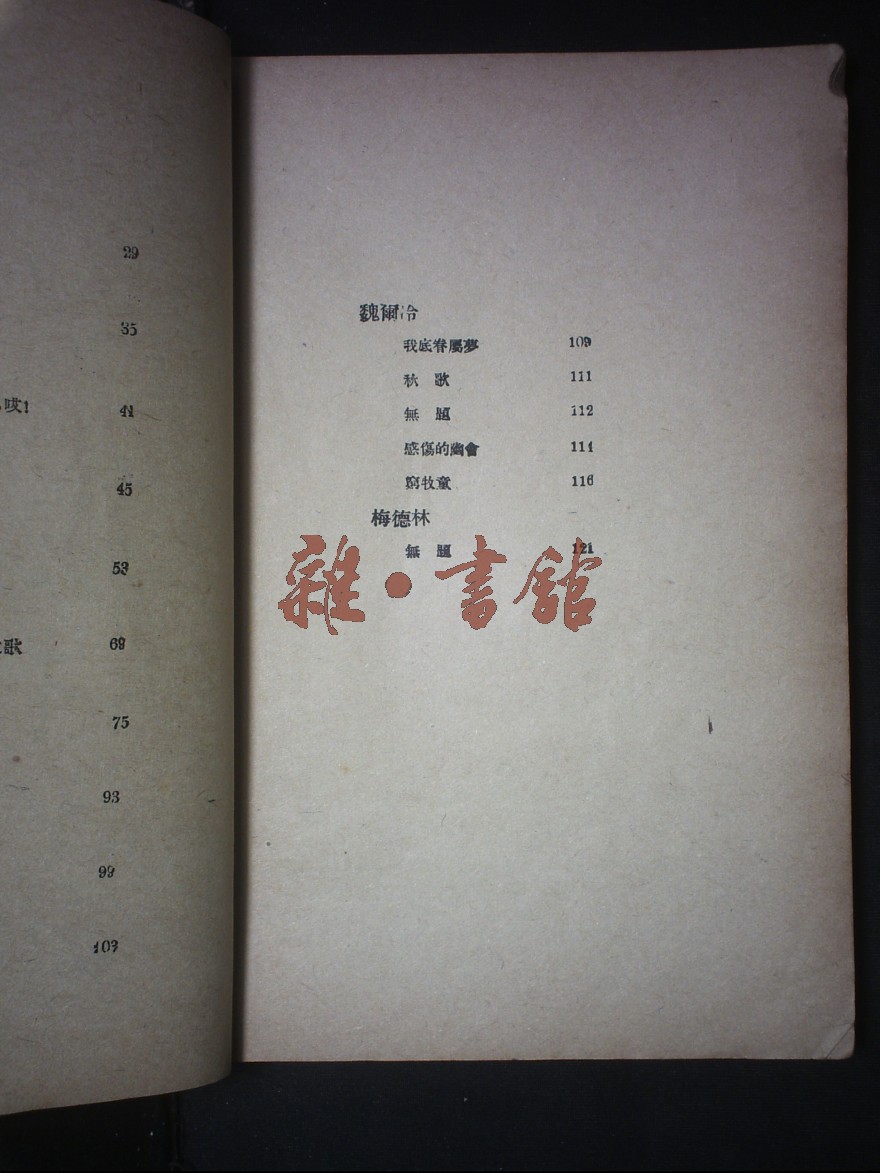 29
35
哎!
41
45
53
歌 69
75
93
99
103
魏爾冷
我底眷屬夢 109
秋歌 111
無題 112
感傷的幽會 114
窮牧童 116
梅德林
無題 121
雜·書館